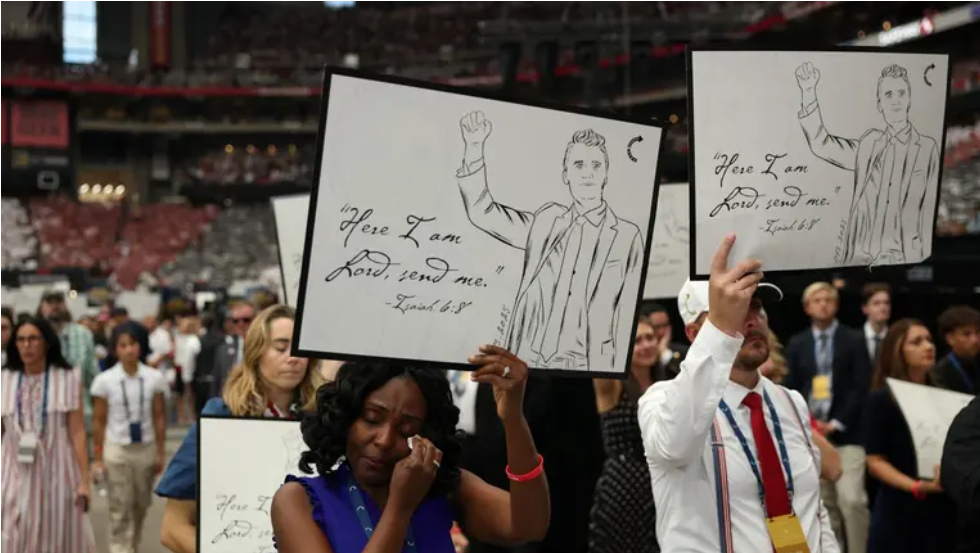 "Here I am
Lord, send me."
-Isaiah 6:8
"Here I am
Lord, send me."
-Isaiah 6:8
"Here I
Lord